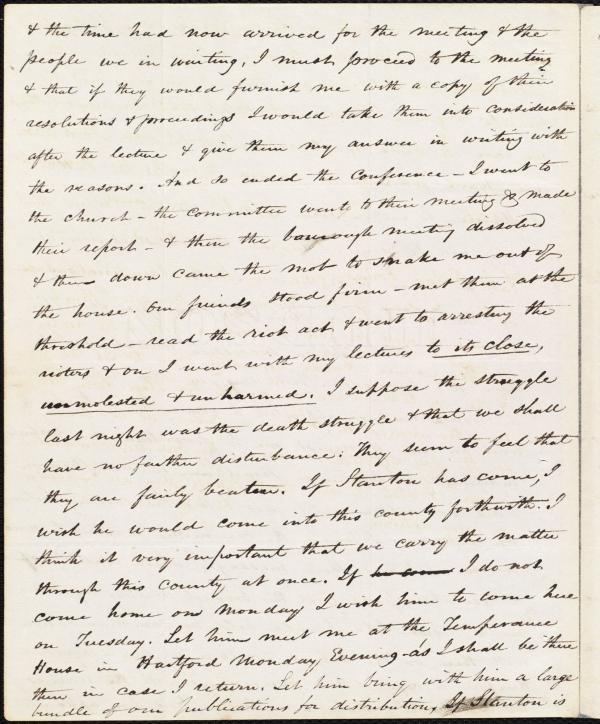 & the time had now arrived for the meeting & the
people we in waiting, I must proceed to the meeting
& that if they would furnish me with a copy of their
resolutions & proceedings I would take them into consideration
after the lecture & give them my answer in writing with
the reasons. And so ended the Conference – I went to
the church – the committee went to their meeting & made
their report – & then the borough meeting dissolved
& then down came the mob to shake me out of
the house. Our friends stood firm – met them at the
threshold – read the riot act & went to arresting the
rioters & on I went with my lectures to its close,
unmolested & unharmed. I suppose the struggle
last night was the death struggle & that we shall
have no farther disturbance. They seem to feel that
they are fairly beaten. If Stanton has come, I
wish he would come into this county forthwith. I
think it very important that we carry the matter
through this County at once. If he come I do not
come home on Monday I wish him to come here
on Tuesday. Let him meet me at the Temperance
House in Hartford Monday Evening – as I shall be there
then in case I return. Let him bring with him a large
bundle of our publications for distribution. If Stanton is